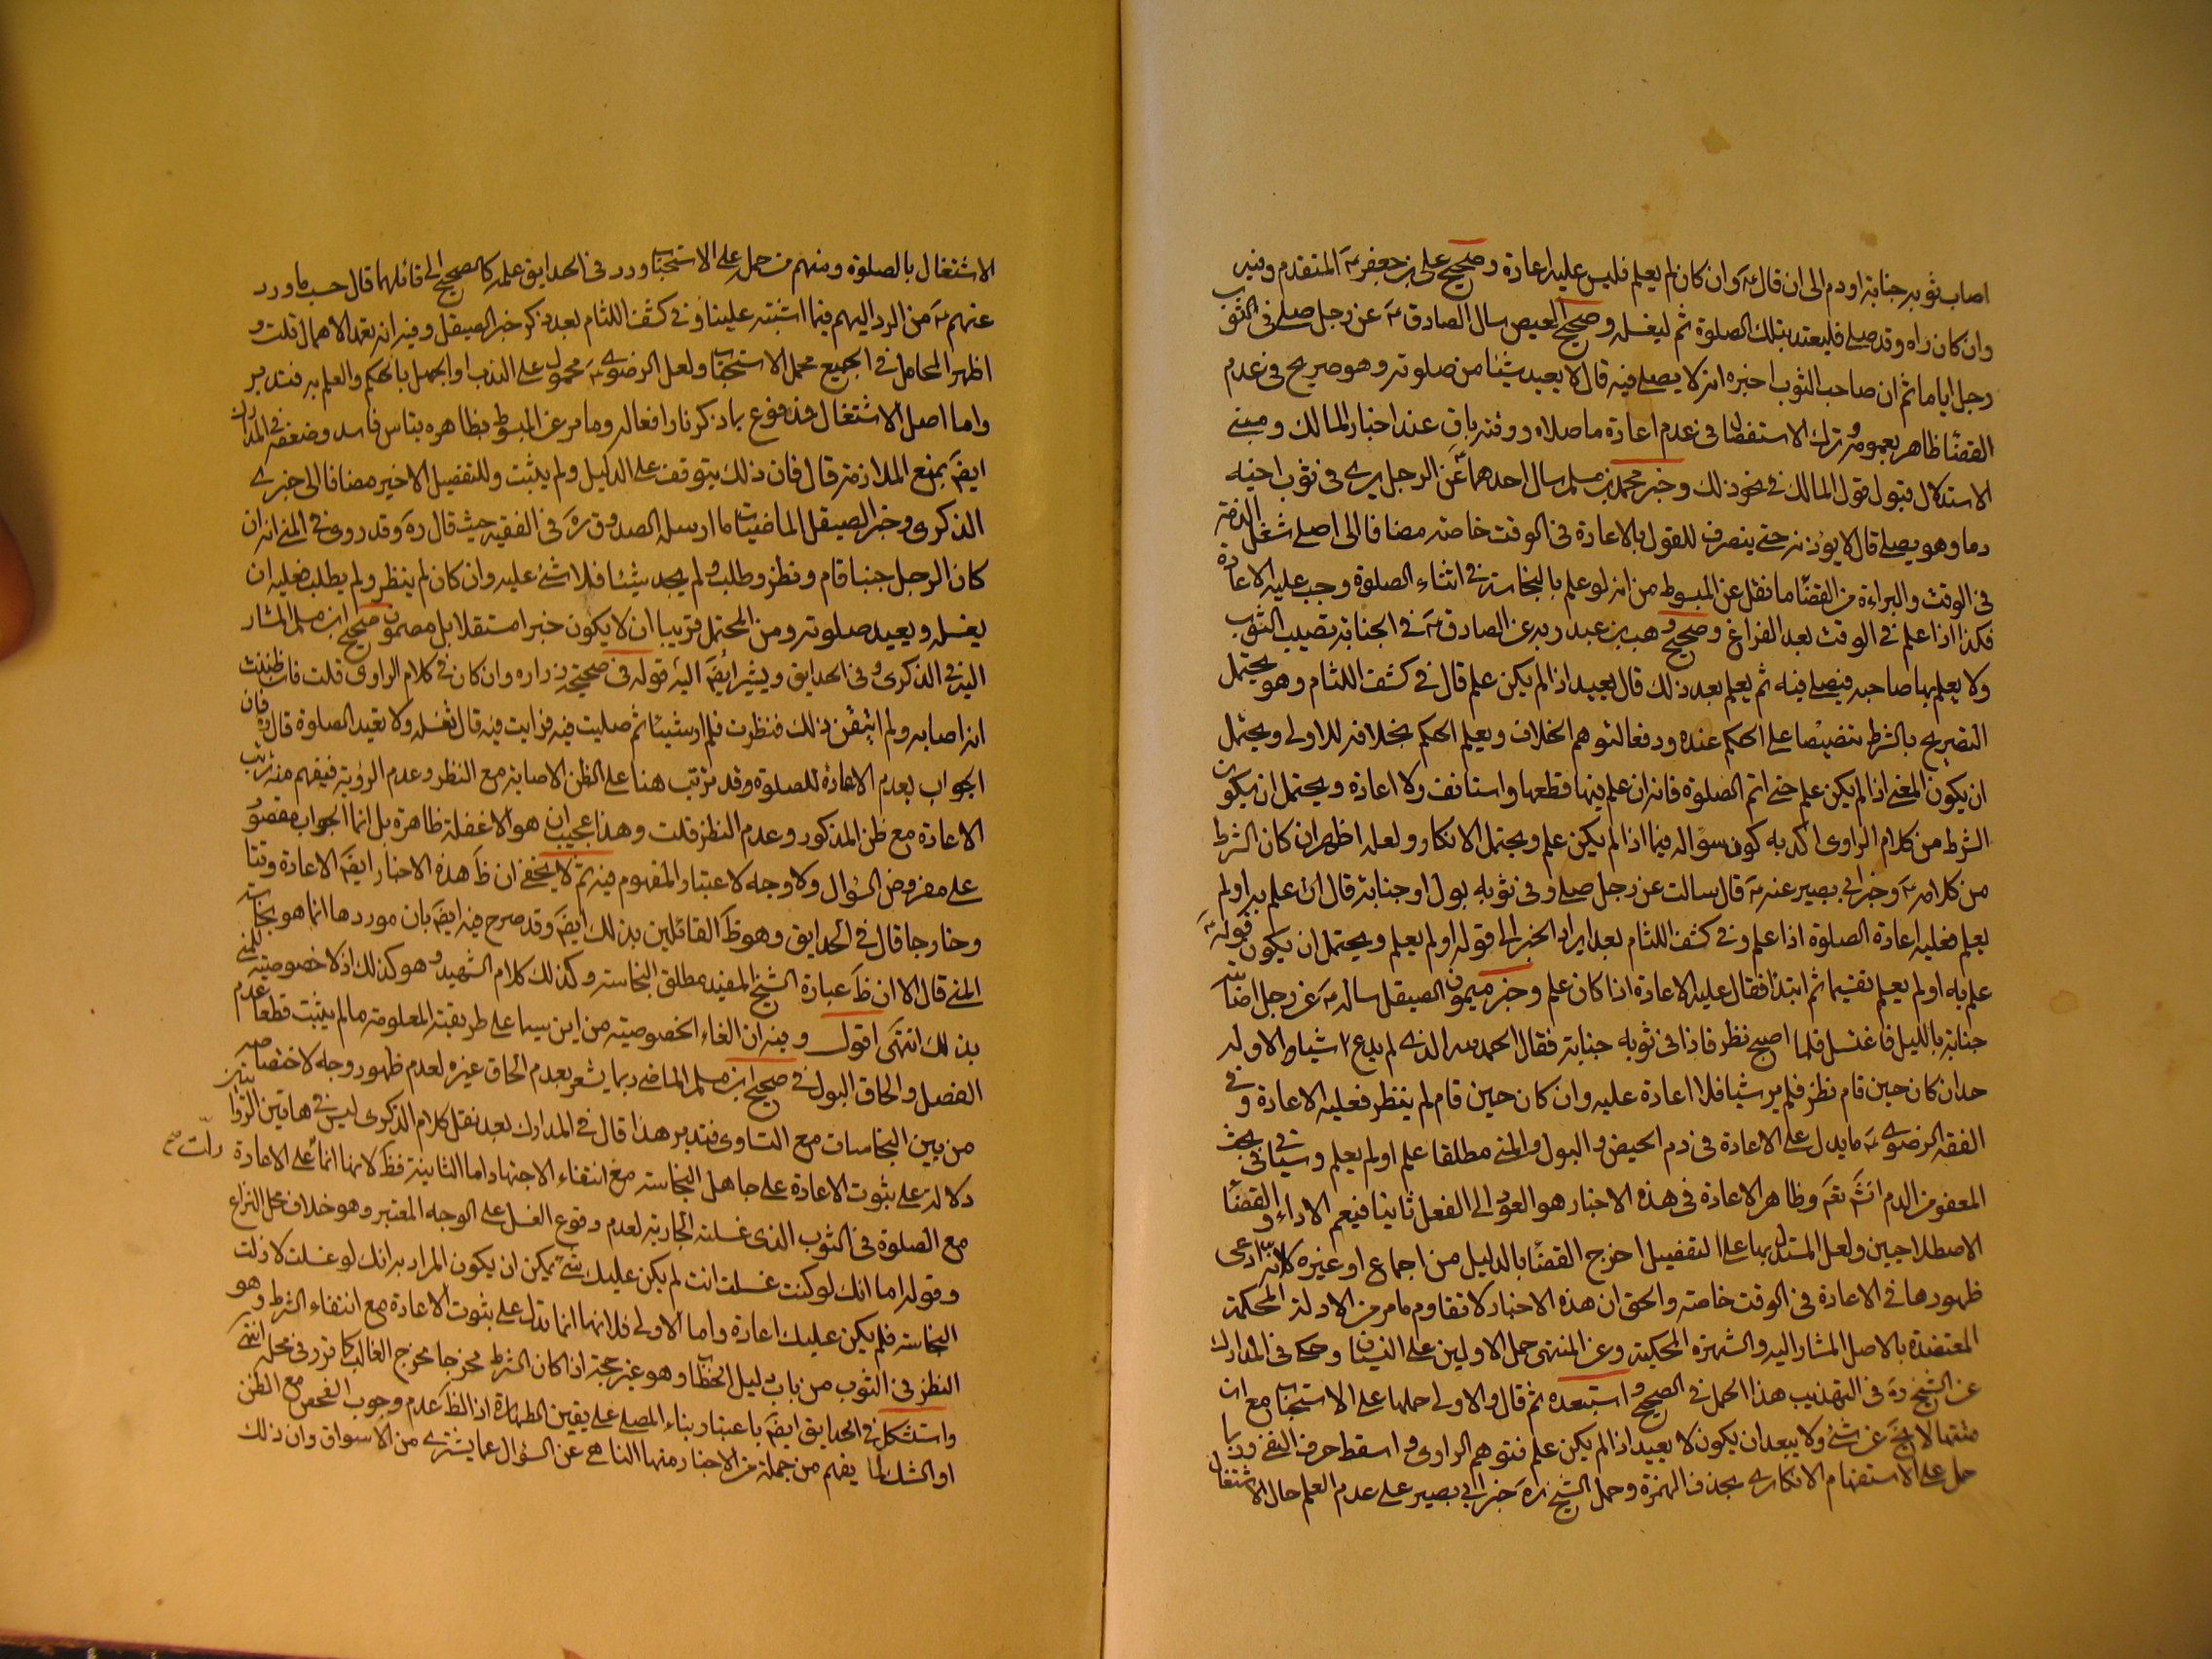 اصاب ثوبه جنابة او دم الى ان قال ع وان كان لم يعلم فليس عليه اعادة وصحيح على بن جعفر ع المتقدم وفيه
وان كان راه وقد صلى فليعتد بتلك الصلوة ثم ليغسله وصحيح العيص سال الصادق ع عن رجل صلى فى الثوب
رجل اياما ثم ان صاحب الثوب اخبره انه لا يصلى فيه قال لا يعيد شيئا من صلوته وهو صريح فى عدم
القضا ظاهر بعمومه وترك الاستفصال فى عدم اعادة ما صلاه ووقته باق عند اخبار المالك ومبنى
الاستدلال قبول قول المالك فى نحو ذلك وخبر محمد بن مسلم سال احدهما ع عن الرجل يرى فى ثوب اخيه
دما وهو يصلى قال لا يؤذنه حتى ينصرف للقول بالاعادة فى الوقت خاصة مضافا الى اصلى شغل الذمة
فى الوقت والبراءة من القضا ما نقل عن المبسوط من انه لو علم بالنجاسة فى اثناء الصلوة وجب عليه الاعادة
فكذا اذا علم فى الوقت بعد الفراغ وصحيح وهب بن عبد ربه عن الصادق ع فى الجنابة تصيب الثوب
ولا يعلم بها صاحبه فيصلى فيه ثم يعلم بعد ذلك قال يعيد اذا لم يكن علم قال فى كشف اللثام وهو يحتمل
التصريح بالشرط تنصيصا على الحكم عنده ودفعا لتوهم الخلاف ويعلم الحكم بخلافه للاولى ويحتمل
ان يكون المعنى اذا لم يكن علم حتى اتم الصلوة فانه ان علم فيها قطعها واستانف ولا اعادة ويحتمل ان يكون
الشرط من كلام الراوى اكد به كون سؤاله فيما اذا لم يكن علم ويحتمل الانكار ولعله اظهر ان كان الشرط
من كلامه ع وخبر ابى بصير عنه ع قال سالت عن رجل صلى وفى ثوبه بول او جنابة قال ان علم به او لم
يعلم فعليه اعادة الصلوة اذا علم وفى كشف اللثام بعد ايراد الخبر الى قوله او لم يعلم ويحتمل ان يكون قوله ع
علم به او لم يعلم تقسيما ثم ابتدا فقال عليه الاعادة اذا كان علم وخبر ميمون الصيقل ساله ع عن رجل اصابته
جنابة بالليل فاغتسل فلما اصبح نظر فاذا فى ثوبه جنابة فقال الحمد لله الذى لم يدع شيا الا وله
حد ان كان حين قام نظر فلم ير شيا فلا اعادة عليه وان كان حين قام لم ينظر فعليه الاعادة وفى
الفقه الرضوى ع ما يدل على الاعادة فى دم الحيض والبول والمنى مطلقا علم او لم يعلم وسياتى فى بحث
المعفو من الدم انش تعم وظاهر الاعادة فى هذه الاخبار هو العود الى الفعل ثانيا فيعم الاداء والقضا
الاصطلاحيين ولعل المستدل بها على التفصيل اخرج القضا بالدليل من اجماع او غيره لانه ادعى
ظهورها فى الاعادة فى الوقت خاصة والحق ان هذه الاخبار لا تقاوم ما مر من الادلة المحكمة
المعتضدة بالاصل المشار اليه والشهرة المحكية وعن المنتهى حمل الاولين على النسيان وحكى فى المدارك
عن الشيخ ره فى التهذيب هذا الحمل فى الصحيح واستبعده ثم قال والاولى حملها على الاستحباب مع ان
متنها لا يخ عن شئ ولا يبعد ان يكون لا يعيد اذا لم يكن علم فتوهم الراوى واسقط حرف النفى وربما
حمل على الاستفهام الانكارى بحذف الهمزة وحمل الشيخ ره خبر ابى بصير على عدم العلم حال الاشتغال
الاشتغال بالصلوة ومنهم من حمله على الاستحباب ورد فى الحدايق علمه كالصحيح الى قائلهما قال حسب ما ورد
عنهم ع من الرد اليهم فيما اشتبه علينا وفى كشف اللثام بعد ذكر خبر الصيقل وفيه انه تعمد الاهمال قلت و
اظهر المحامل فى الجميع محمل الاستحباب ولعل الرضوى ع محمول على الندب او الجهل بالحكم والعلم به فتدبر
واما اصل الاشتغال فمدفوع بما ذكرنا رافعا له وما مر عن المبسوط فظاهره قياس فاسد وضعفه فى المدارك
ايضا بمنع الملازمة قال فان ذلك يتوقف على الدليل ولم يثبت وللتفصيل الاخير مضافا الى خبرى
الذكرى وخبر الصيقل الماضيات ما ارسله الصدوق ره فى الفقيه حيث قال ره وقد روى فى المنى انه ان
كان الرجل جنبا قام ونظر وطلب ولم يجد شيئا فلا شئ عليه وان كان لم ينظر ولم يطلب فعليه ان
يغسله ويعيد صلوته ومن المحتمل قريبا ان لا يكون خبرا مستقلا بل مضمون صحيح ابن مسلم المشار
اليه فى الذكرى وفى الحدايق ويشير ايضا اليه قوله فى صحيحة زراره وان كان فى كلام الراوى قلت فان ظننت
انه اصابه ولم اتيقن ذلك فنظرت فلم ار شيئا ثم صليت فيه فرايت فيه قال تغسله ولا تعيد الصلوة قال ره فان
الجواب بعدم الاعادة للصلوة وقد ترتب هنا على الظن الاصابة مع النظر وعدم الرؤية فيفهم منه ترتب
الاعادة مع ظن المذكور وعدم النظر قلت وهذا عجيب ان هو الا غفلة ظاهرة بل انما الجواب مقصور
على مفروض السؤال ولا وجه لاعتبار المفهوم فيه ثم لا يخفى ان ظ هذه الاخبار ايضا الاعادة وقتا
وخارجا قال فى الحدايق وهو ظ القائلين بذلك ايضا وقد صرح فيه ايضا بان موردها انما هو نجاسته
المنى قال الا ان ظ عبارة الشيخ المفيد مطلق النجاسة وكذلك كلام الشهيد وهو كذلك اذ لا خصوصية للمنى
بذلك انتهى اقول وفيه ان الغاء الخصوصية من اين سيما على طريقته المعلومة ما لم يثبت قطعا عدم
الفصل والحاق البول فى صحيح ابن مسلم الماضى ربما يشعر بعدم الحاق غيره لعدم ظهور وجه لاختصاصه
من بين النجاسات مع التساوى فتدبر هذا قال فى المدارك بعد نقل كلام الذكرى ليس فى هاتين الروايتين
دلالة على ثبوت الاعادة على جاهل النجاسة مع انتفاء الاجتهاد اما الثانية فظ لانها انما على الاعادة دلت
مع الصلوة فى الثوب الذى غسلته الجارية لعدم وقوع الغسل على الوجه المعتبر وهو خلاف محل النزاع
وقوله اما انك لو كنت غسلت انت لم يكن عليك شئ يمكن ان يكون المراد به انك لو غسلت لازلت
النجاسة فلم يكن عليك اعادة واما الاولى فلانها انما تدل على ثبوت الاعادة مع انتفاء الشرط وهو
النظر فى الثوب من باب دليل الخطاب وهو غير حجة اذا كان الشرط مخرجا مخرج الغالب كما قرر فى محله انتهى
واستشكل فى الحدايق ايضا باعتبار بناء المصلى على يقين الطهارة اذ الظ عدم وجوب الفحص مع الظن
او الشك لما يفهم من جملة من الاخبار منها الناهى عن السؤال عما يشترى من الاسواق وان ذلك